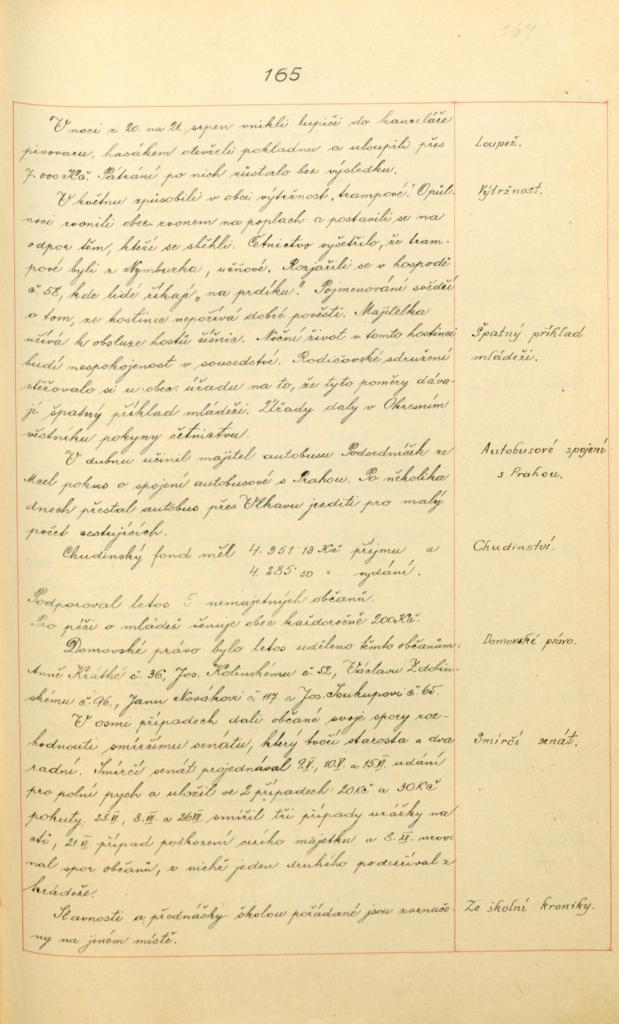 167
165
V noci z 20. na 21. srpen vnikli lupiči do kanceláře
pivovaru, hasákem otevřeli pokladnu a uloupili přes
7.000 Kč. Pátrání po nich zůstalo bez výsledku.
Loupež.
V květnu způsobili v obci výtržnost „trampové“. O půl-
noci zvonili obec. zvonem na poplach a postavili se na
odpor těm, kteří se sběhli. Četnictvo vyšetřilo, že tram-
pové byli z Nymburka, učňové. Rozjařili se v hospodě
č. 58, kde lidé říkají „na prdíku“. Pojmenování svědčí
o tom, že hostinec nepožívá dobré pověsti. Majitelka
užívá k obsluze hostů šišnic. Noční život v tomto hostinci
budí nespokojenost v sousedství. Rodičovské sdružení
stěžovalo si u obec. úřadu na to, že tyto poměry dáva-
jí špatný příklad mládeži. Úřady daly v Okresním
věstníku pokyny četnictvu.
Výtržnost.
Špatný příklad
mládeži.
V dubnu učinil majitel autobusu Podsedníček ze
Mcel pokus o spojení autobusové s Prahou. Po několika
dnech přestal autobus přes Vlkavu jezditi pro malý
počet cestujících.
Autobusové spojení
s Prahou.
Chudinský fond měl 4.351·13 Kč příjmu a
4.285·50 " vydání.
Podporoval letos 5 nemajetných občanů.
Pro péči o mládež věnuje obec každoročně 200 Kč.
Chudinství.
Domovské právo bylo letos uděleno těmto občanům:
Anně Krátké č. 36, Jos. Kolinskému č. 52, Václavu Zdobin-
skému č. 96., Janu Novákovi č. 117. a Jos. Soukupovi č. 65.
Domovské právo.
V osmi případech dali občané svoje spory roz-
hodnouti smírčímu senátu, který tvoří starosta a dva
radní. Smírčí senát projednával 9.V, 10.V. a 15.VI. udání
pro polní pych a uložil ve 2 případech: 20 Kč a 30 Kč
pokuty. 25.VI, 8.VII. a 26.VII smířil tři případy urážky na
cti, 21.VI. případ poškození cizího majetku a 8.IX. urov-
nal spor občanů, z nichž jeden druhého podezříval z
krádeže.
Smírčí senát.
Slavnosti a přednášky školou pořádané jsou zaznače-
ny na jiném místě.
Ze školní kroniky.